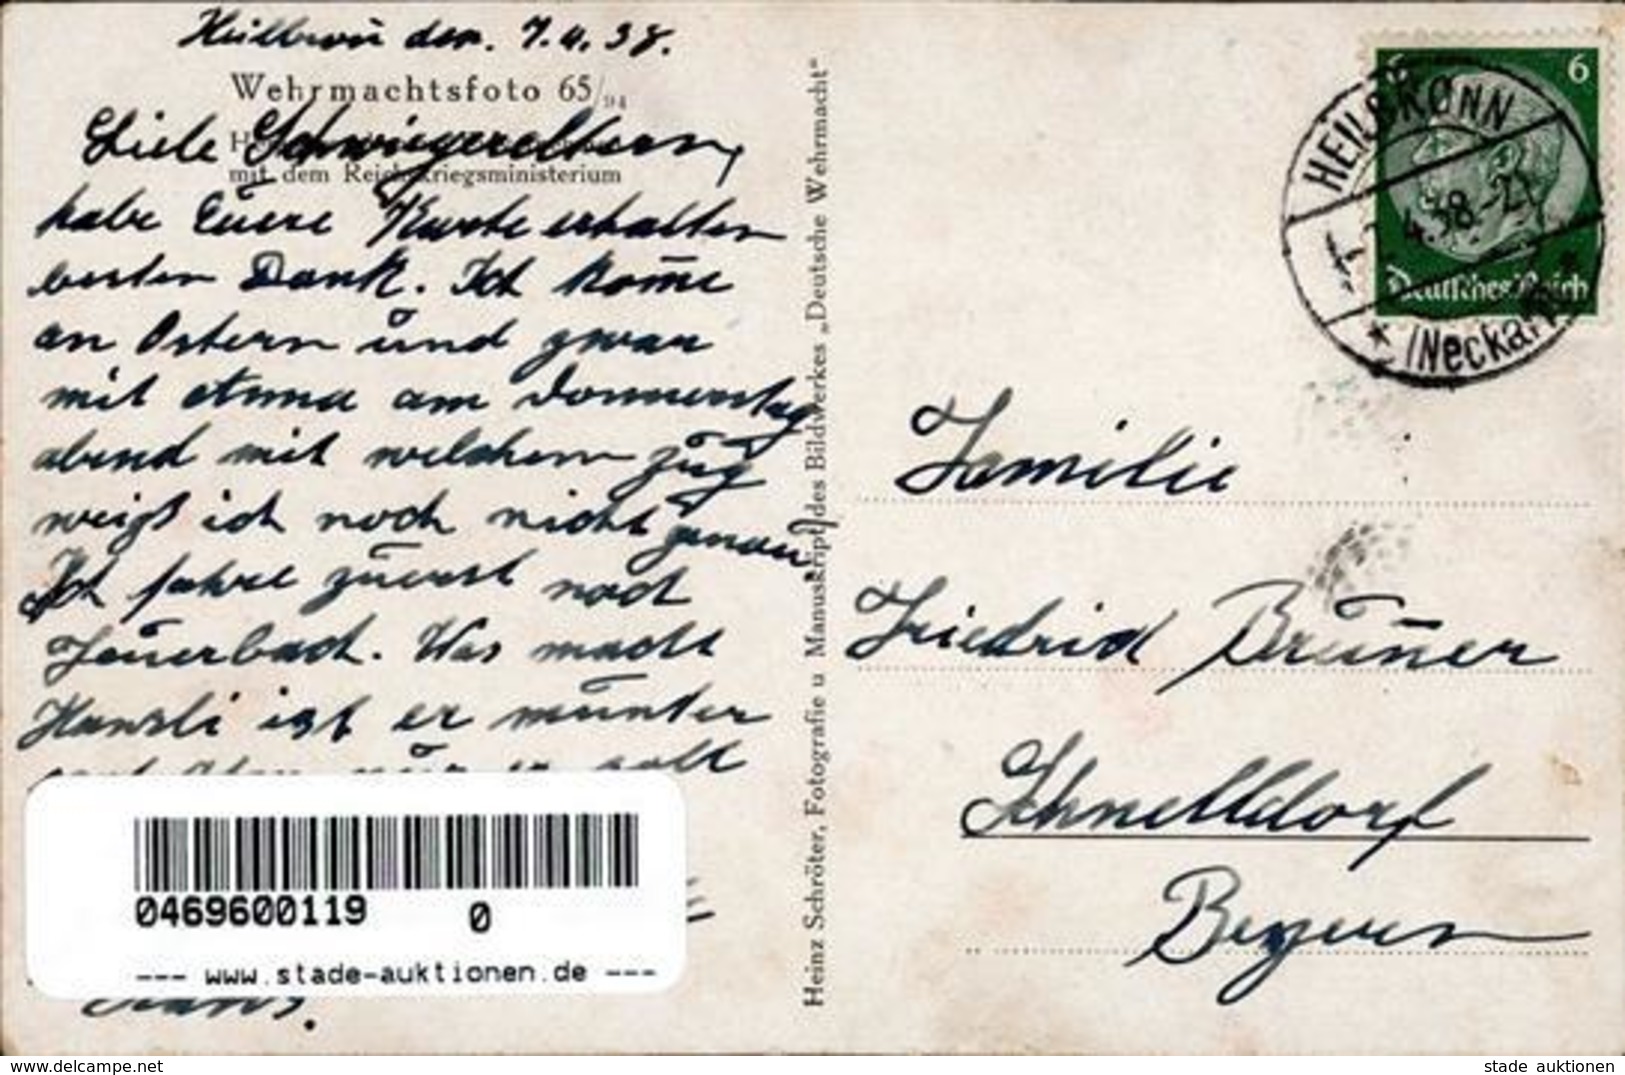 Heilbronn den. 7.4.38.
Wehrmachtsfoto 65/94
mit dem Reichskriegsministerium
Liebe Schwiegereltern,
habe Eūere Karte erhalten
besten Dank. Ich kom̄e
an Ostern ūnd zwar
mit Anna am Donnerstag
abend mit welchem Zūg
weiß ich noch nicht genau
Ich fahre zūerst nach
Feūerbach. Was macht
Hansli ist er mūnter
nūr er soll
Hans.
0469600119 0
--- www.stade-auktionen.de ---
Heinz Schröter, Fotografie u Manuskript des Bildwerkes „Deutsche Wehrmacht"
6
Deutsches Reich
HEILBRONN
4.38.-21
* (Neckar) *
Familie
Friedrich Brūn̄er
Schnelldorf
Bayern
delcampe.net
stade auktionen